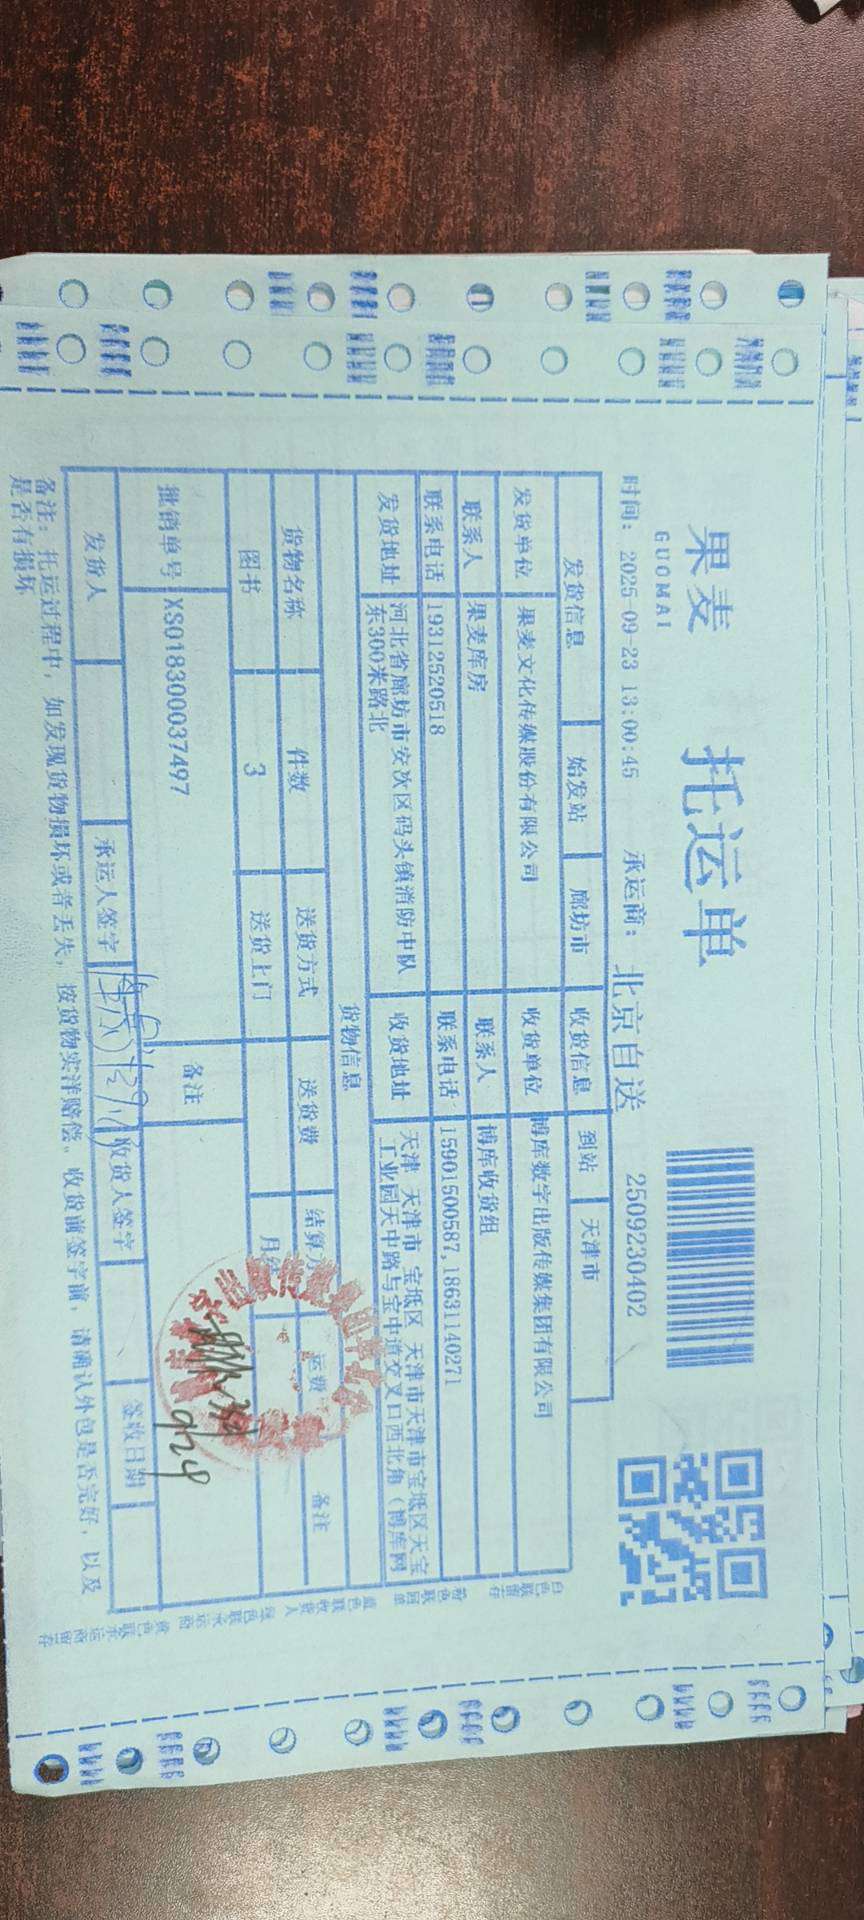 果麦
GUOMAI
托运单
时间: 2025-09-23 13:00:45 承运商: 北京自送 2509230402
发货信息 始发站 廊坊市 收货信息 到站 天津市
发货单位 果麦文化传媒股份有限公司 收货单位 博库数字出版传媒集团有限公司
联系人 果麦库房 联系人 博库收货组
联系电话 19312520518 联系电话 15901500587,18631140271
发货地址 河北省廊坊市安次区码头镇消防中队 收货地址 天津 天津市 宝坻区 天津市天津市宝坻区天宝
东300米路北 工业园天中路与宝中道交叉口西北角（博库网
货物信息
货物名称 件数 送货方式 送货费 结算方 运费 备注
图书 3 送货上门 月
批销单号 XS018300037497 备注
发货人 承运人签字 收货人签字 签收日期
备注: 托运过程中, 如发现货物损坏或者丢失, 按货物实洋赔偿。收货前签字前, 请确认外包是否完好, 以及
是否有损坏
白色联留存
粉色联回单
蓝色联收货人
绿色联承运商
黄色联承运商留存